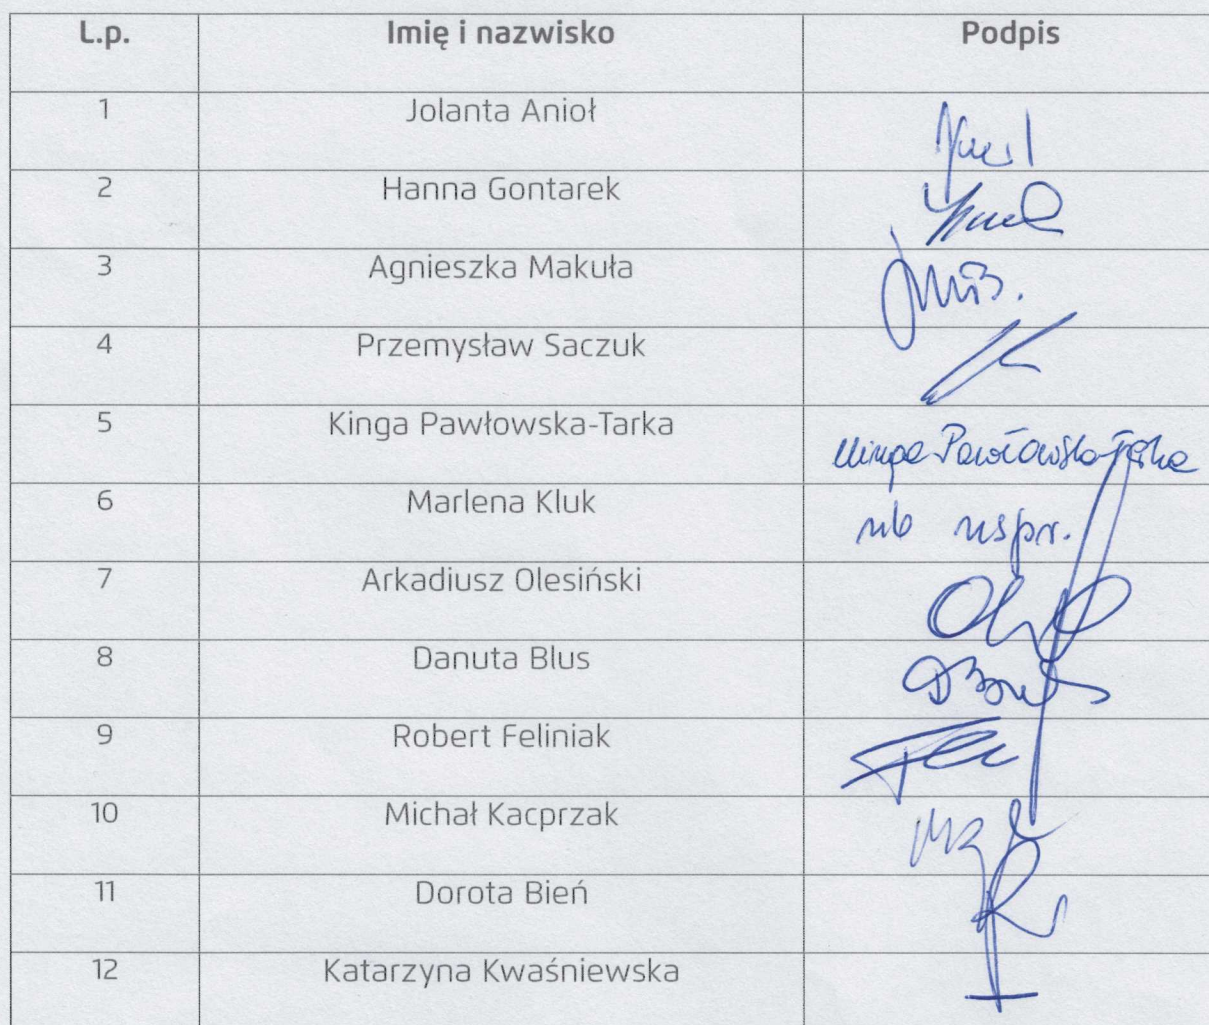 L.p. Imię i nazwisko Podpis
1 Jolanta Anioł
2 Hanna Gontarek
3 Agnieszka Makuła
4 Przemysław Saczuk
5 Kinga Pawłowska-Tarka Kinga Pawłowska-Tarka
6 Marlena Kluk
7 Arkadiusz Olesiński
8 Danuta Blus
9 Robert Feliniak
10 Michał Kacprzak
11 Dorota Bień
12 Katarzyna Kwaśniewska